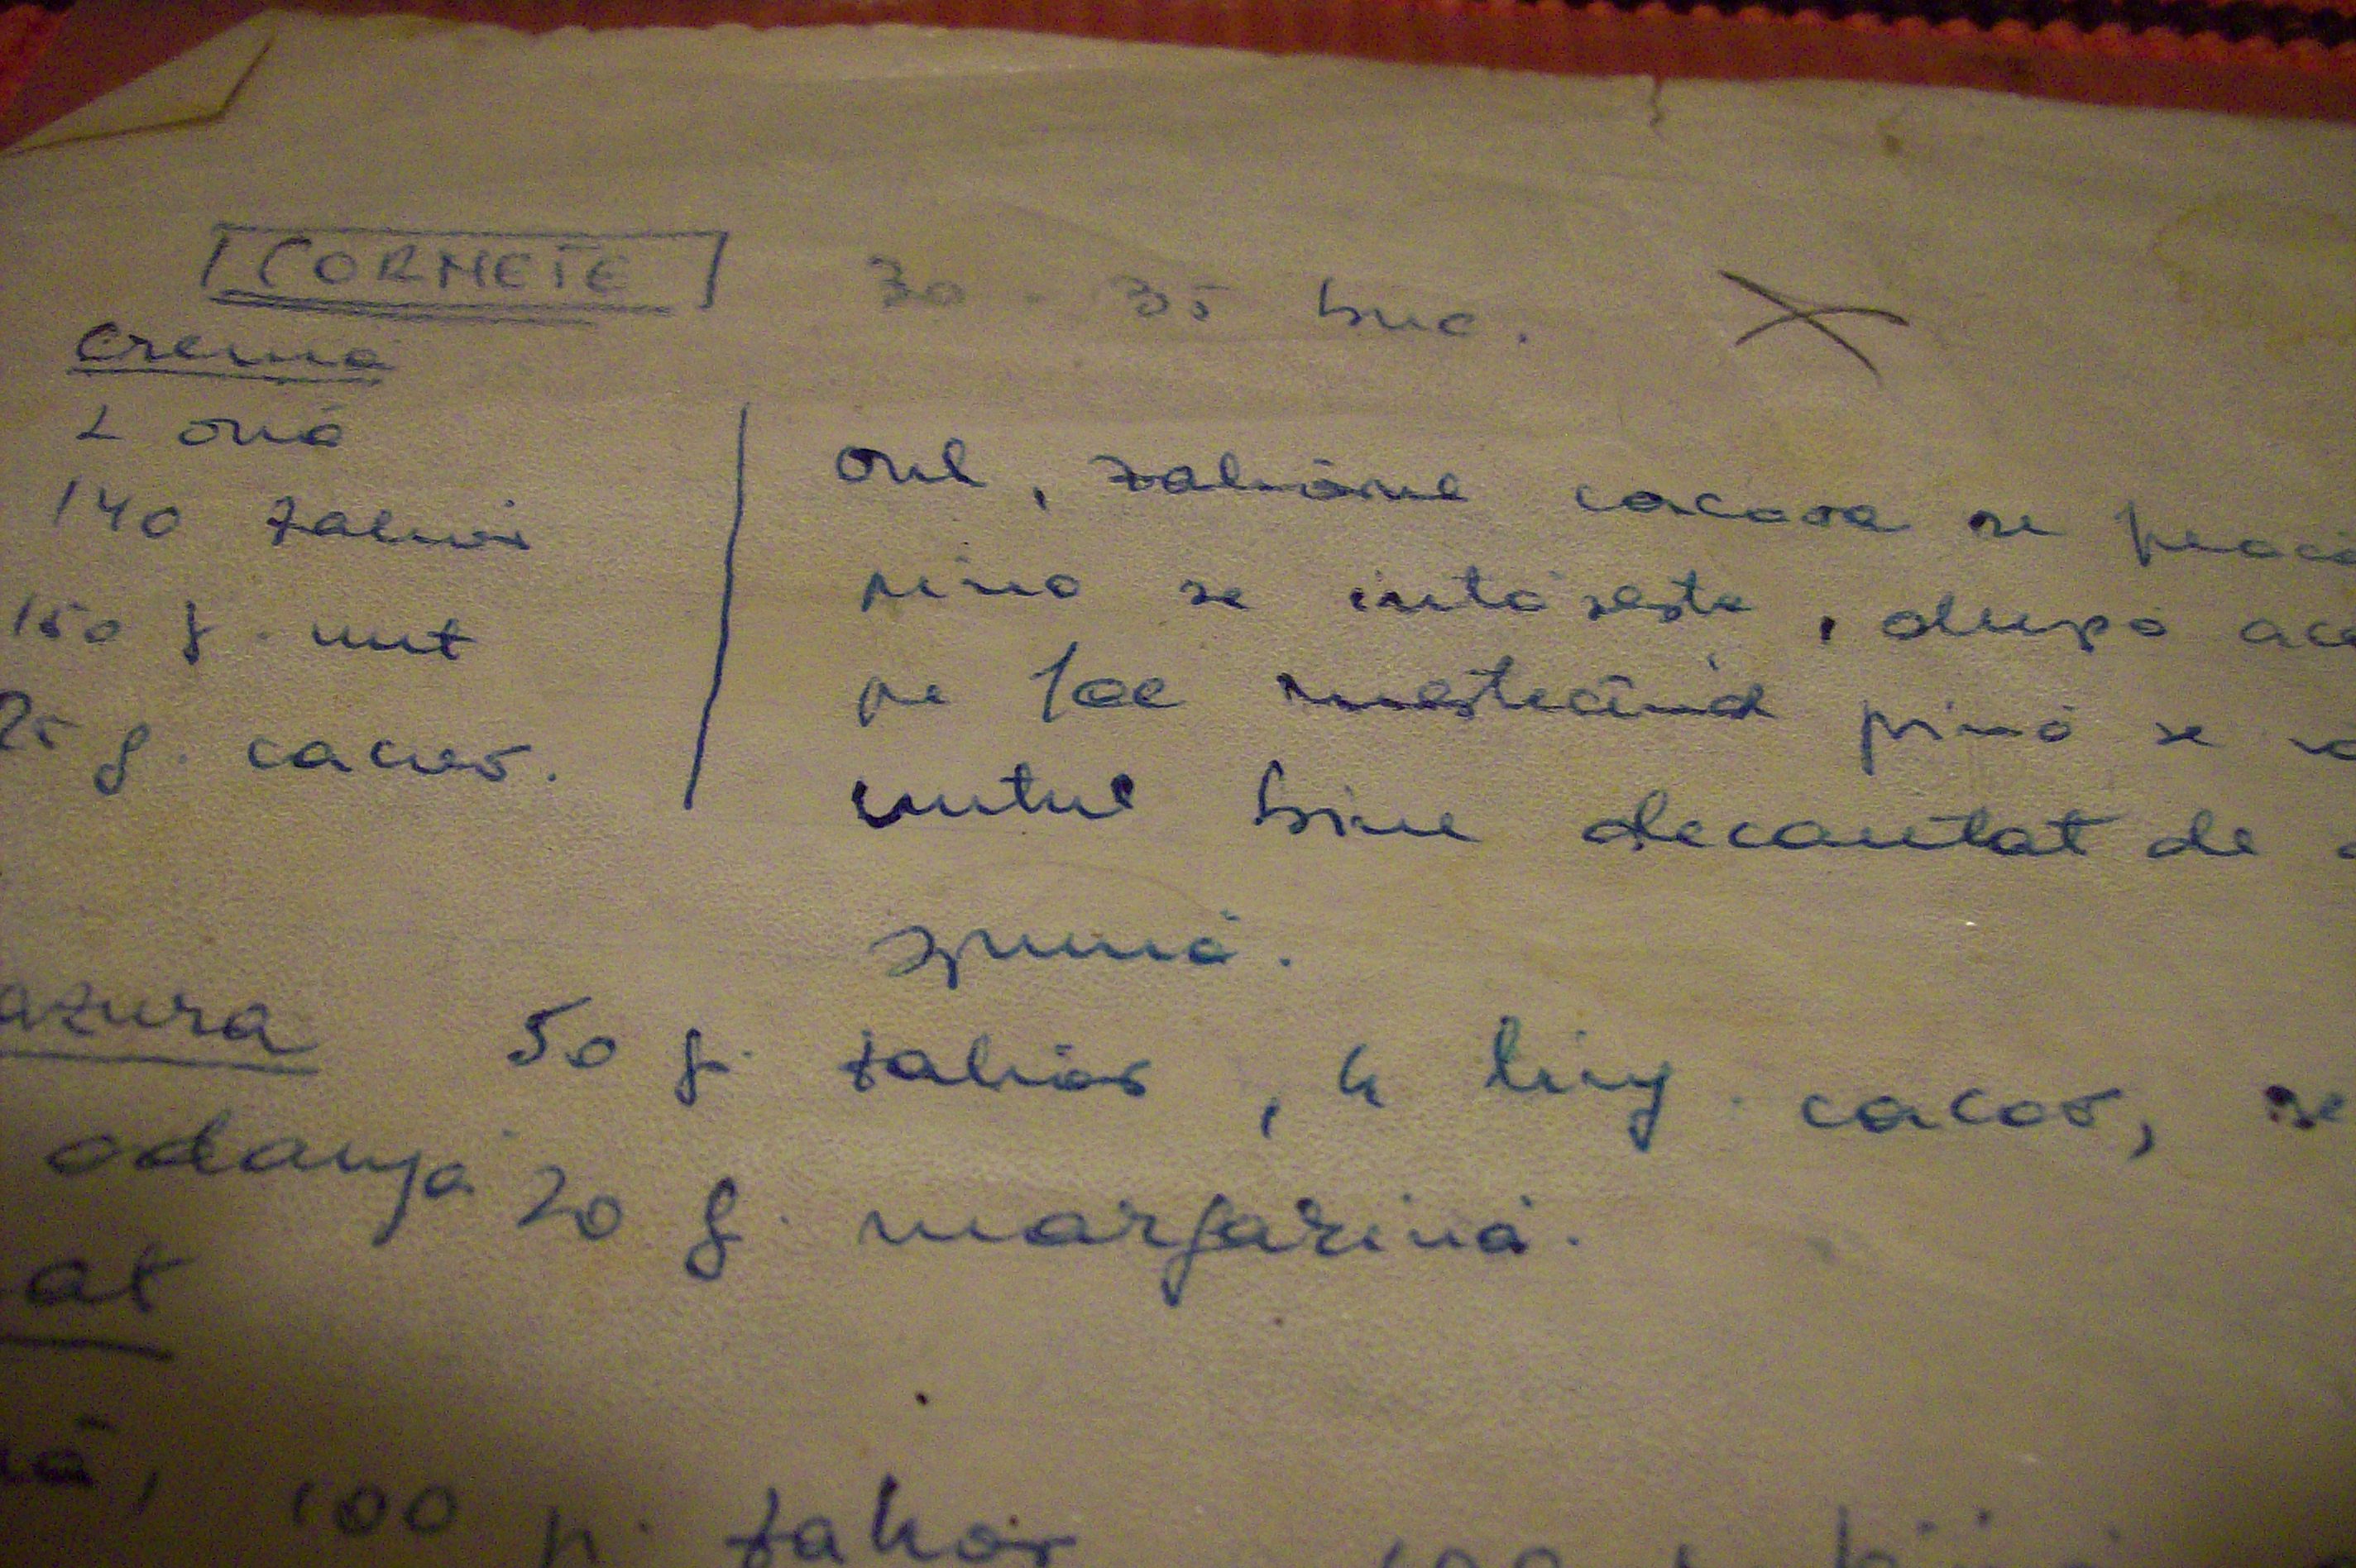 CORNETE 30 - 35 buc.
Cremă
2 ouă
140 zahăr
150 g. unt
25 g. cacao.
oul, zahărul cacaoa se freacă
pînă se întărește, după ace
pe foc mestecînd pînă se
untul bine decantat de
spumă.
azura 50 g. zahăr, 4 ling. cacao, se
adaugă 20 g. margarină.
at
100 g. zahăr 100